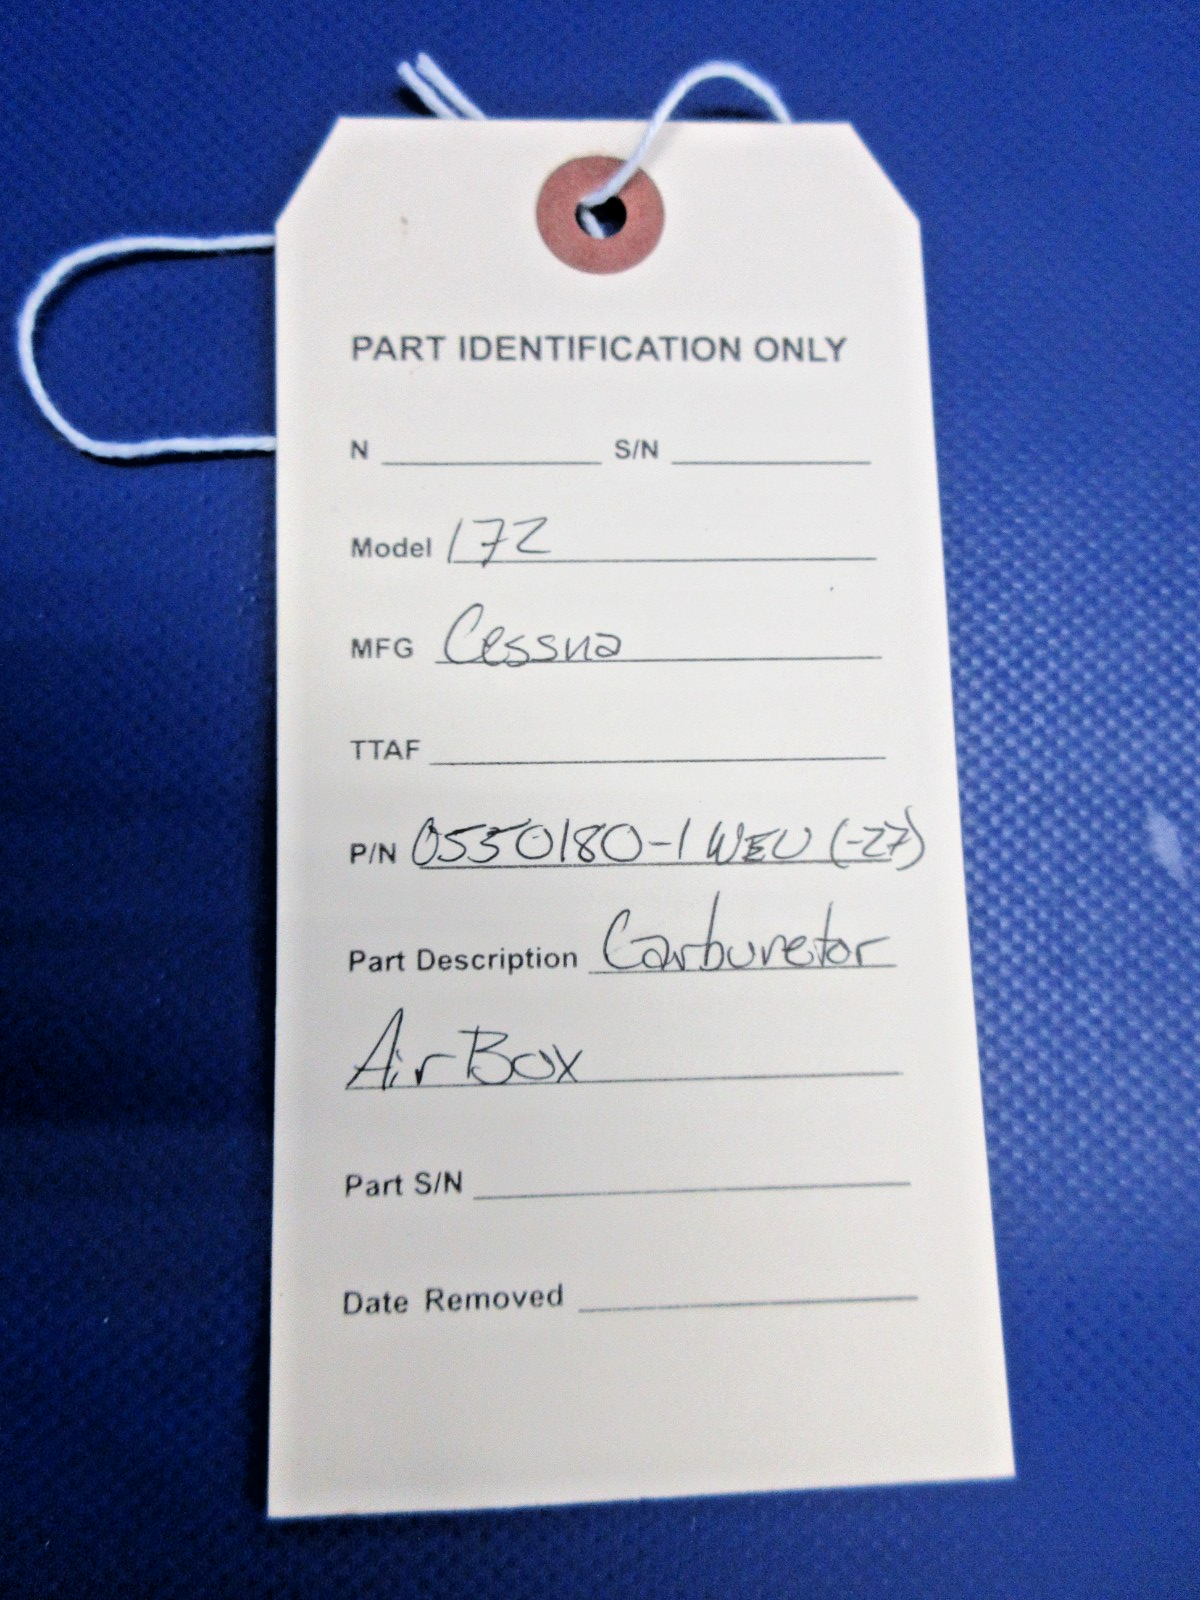 PART IDENTIFICATION ONLY
N S/N
Model 172
MFG Cessna
TTAF
P/N 0550180-1 WEU (-27)
Part Description Carburetor
Air Box
Part S/N
Date Removed